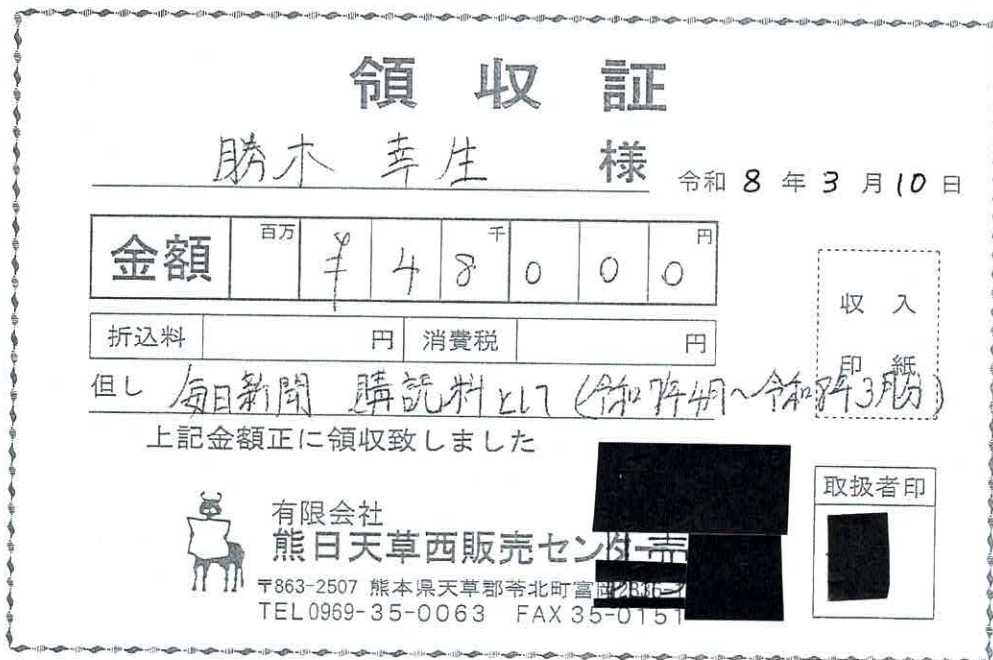 領収証
勝木 幸生 様
令和 8 年 3 月 10 日
金額 百万 ¥ 4 8 千 0 0 0 円
折込料 円 消費税 円
収入
印紙
但し 毎日新聞 購読料として (令和7年4月～令和8年3月分)
上記金額正に領収致しました
取扱者印
有限会社
熊日天草西販売センター
〒863-2507 熊本県天草郡苓北町富岡
TEL 0969-35-0063 FAX 35-0151